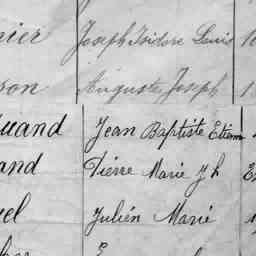 nier Joseph Isidore Louis
son Auguste Joseph
uand Jean Baptiste Etienn
and Pierre Marie J h
uel Julién Marié